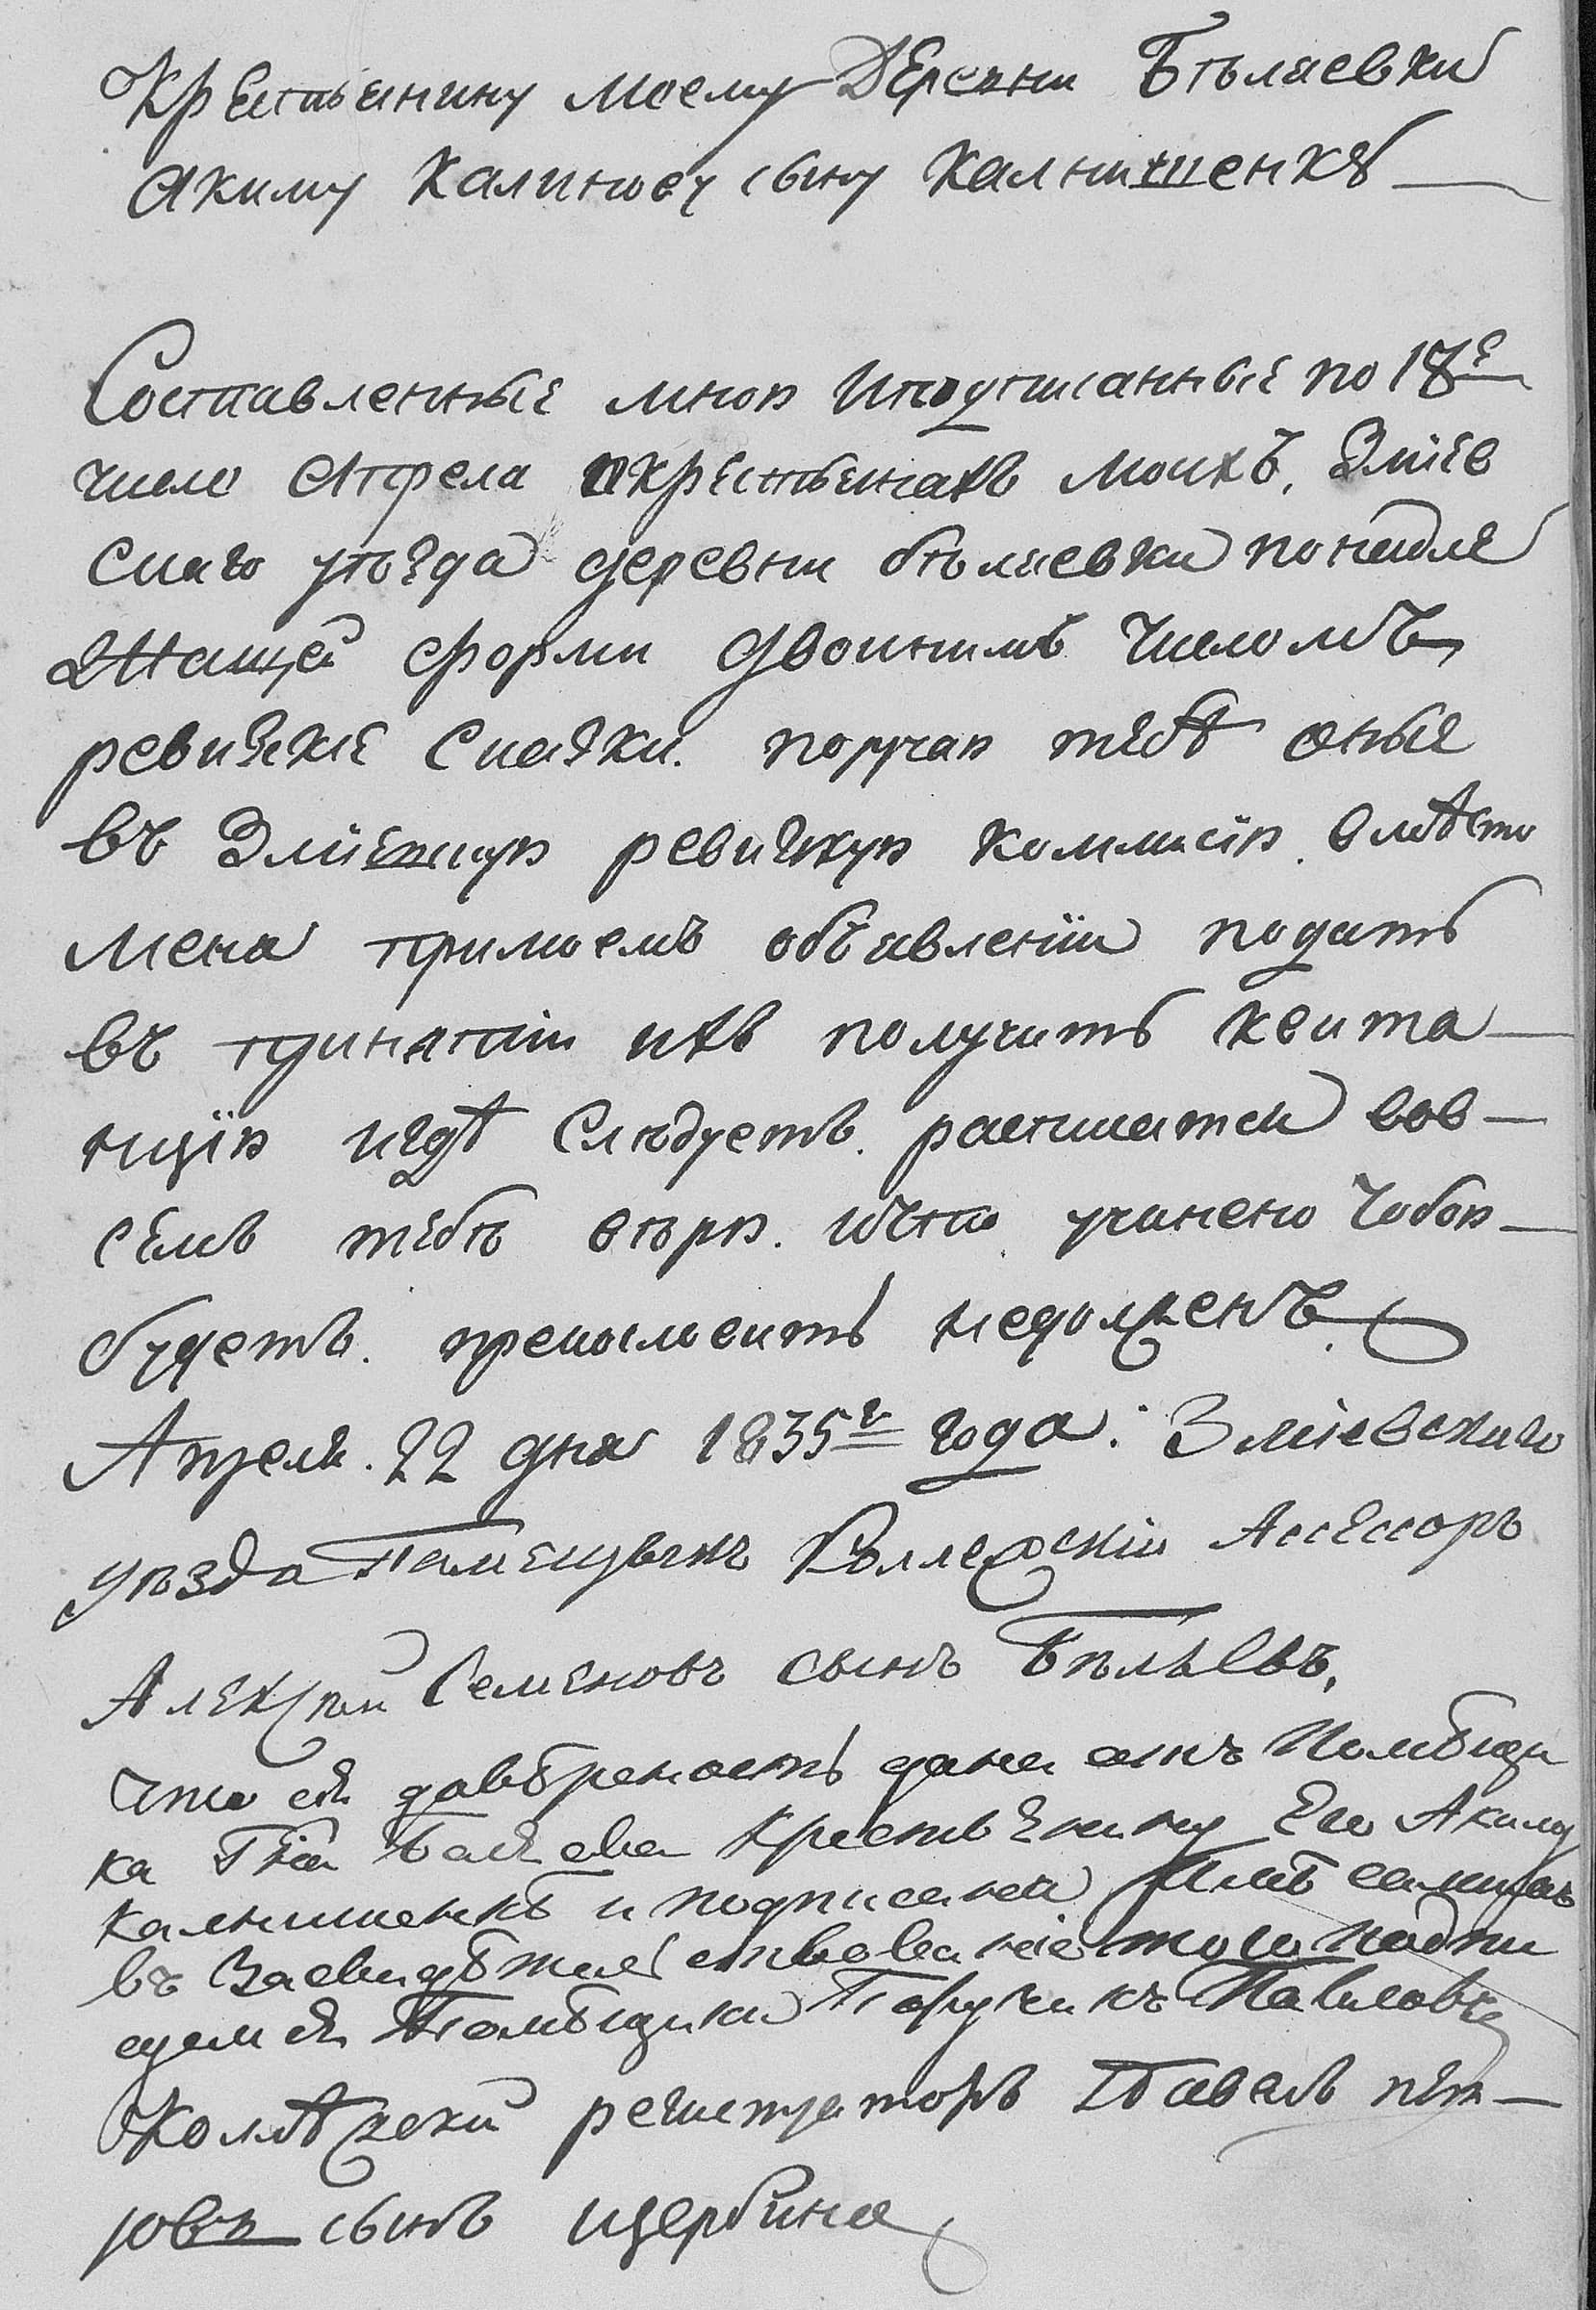 Крестьянину моему Деревни Бѣляевки
Акиму Калинову сыну Калнишенкѣ
Составленные мною и подписанные по 18е
число Апреля о крестьянахъ моихъ, Зміев
скаго уѣзда деревни бѣляевки по надле
жащей форми двойнимъ числомъ
ревизкіе сказки. поручаю тебѣ оные
въ Зміевскую ревизкую коммисію. вмѣсто
меня при моемъ объявленіи подать
въ принятіи ихъ получить квита
нцію и гдѣ слѣдуетъ. расписатся вов
семъ тебѣ верю. и что учинено тобою
будетъ. прекословить недолженъ
Апреля. 22 дня 1835го года: Зміевскаго
уѣзда Помещыкъ Коллежскій Ассессоръ
Алексѣй Семеновъ сынъ Бѣляевъ,
Что сія довѣреность дана отъ Помѣщи
ка Гна Беляева Крестьянину Его Акиму
Калнишенкѣ и подписана Имъ самимъ
въ Засвидѣтельствованіе того подпи
суемся Помѣщики Порутчикъ Павловъ
Колѣжскій регистраторъ Павелъ пет
ровъ сынъ щербина